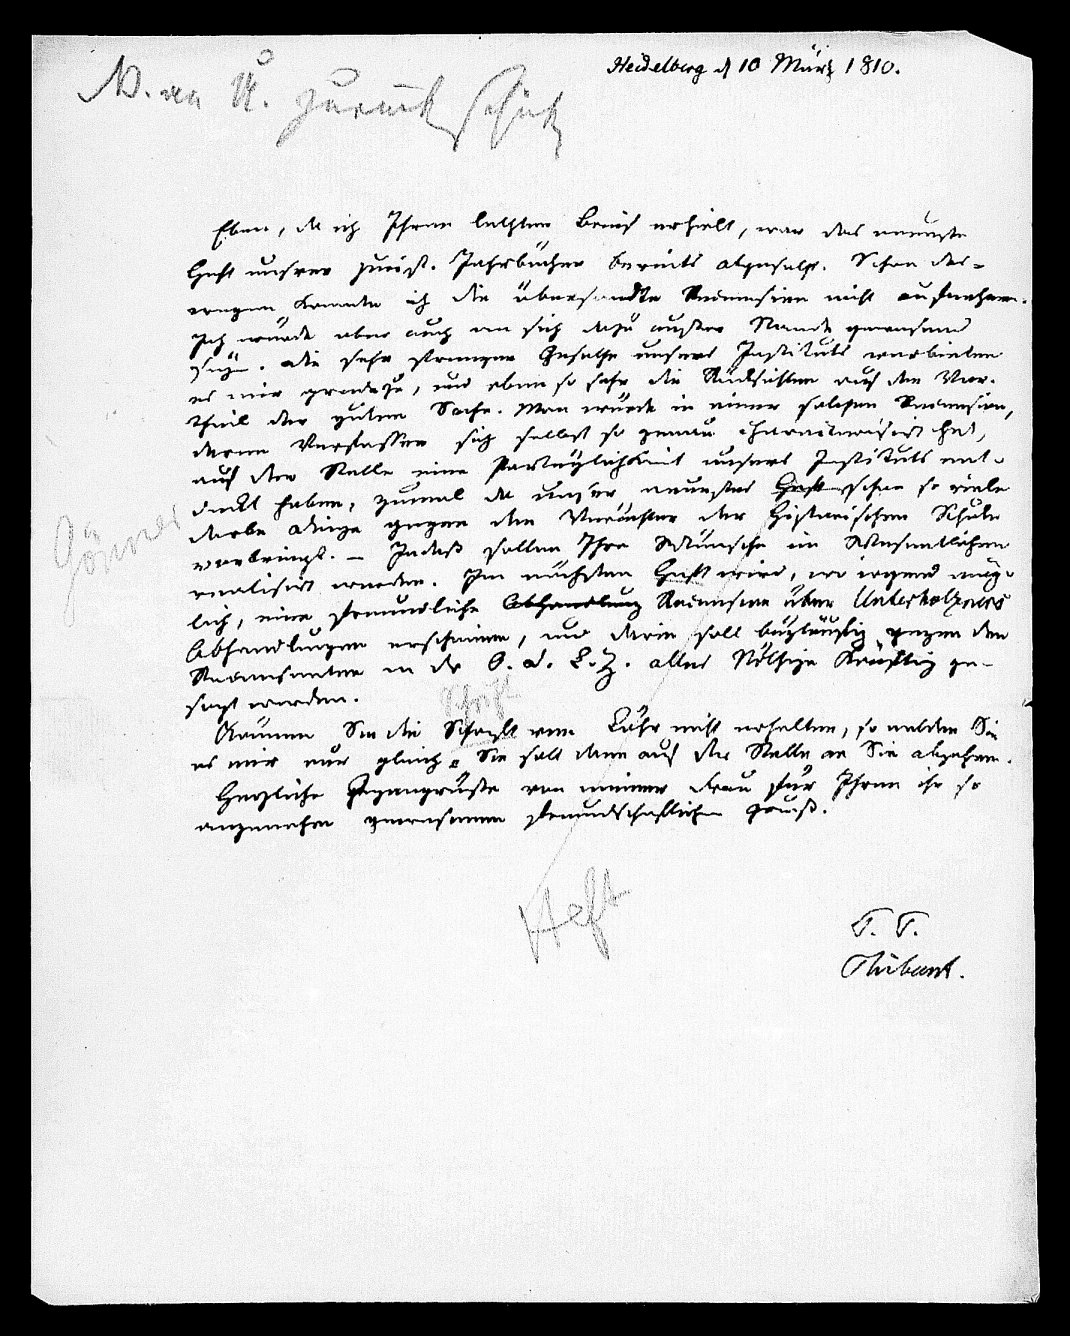 N. an U. zurückschick
Heidelberg d 10 März 1810.
Eben, da ich Ihren letzten Brief erhielt, war das neunte
Heft unsrer jurist. Jahrbücher bereits abgesetzt. Schon des-
wegen konnte ich die übersandte Recension nicht aufnehmen.
Ich würde aber auch an sich dazu außer Stande gewesen
seyn. Die sehr strengen Gesetze unsers Instituts verbieten
es mir gradezu, und eben so sehr die Rücksichten auf den Vor-
theil der guten Sache. Man würde in einer solchen Recension,
deren Verfasser sich selbst so genau charakterisirt hat,
auf der Stelle eine Partheylichkeit unsers Instituts ent-
deckt haben, zumal da unser neuestes Heft schon so viele
derbe Dinge gegen den Verächter der Historischen Schule
vorbringt. – Indeß sollen Ihre Wünsche im Wesentlichen
Gönner
realisirt werden. Im nächsten Heft wird, wo irgend mög-
lich, eine freundliche Abhandlung Recension über Unterholzners
Abhandlungen erscheinen, und darin soll beyläufig gegen den
Recensenten in der O. d. L. Z. alles Nöthige kräftig ge-
sagt werden.
Schrift
Können Sie die Schrift von Löhr nicht erhalten, so melden Sie
es mir nur gleich. Sie soll dann auf der Stelle an Sie abgehen.
Herzliche Gegengrüße von meiner Frau für Ihren ihr so
angenehm gewesenen freundschaftlichen Gruß.
Heft
T. T.
Thibaut.